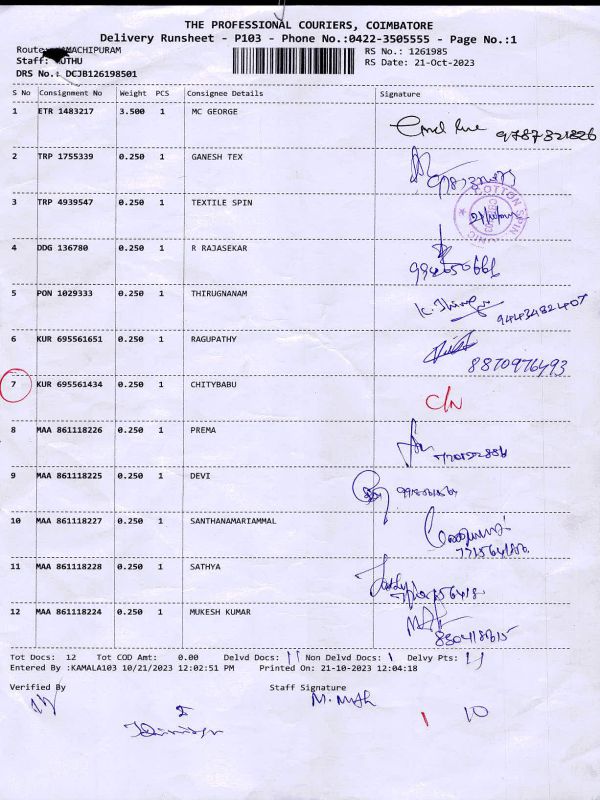 THE PROFESSIONAL COURIERS, COIMBATORE
Delivery Runsheet - P103 - Phone No.:0422-3505555 - Page No.:1
Route: MACHIPURAM RS No.: 1261985
Staff: MUTHU RS Date: 21-Oct-2023
DRS No.: DCJB126198501
S No Consignment No Weight PCS Consignee Details Signature
1 ETR 1483217 3.500 1 MC GEORGE
9787321826
2 TRP 1755339 0.250 1 GANESH TEX
3 TRP 4939547 0.250 1 TEXTILE SPIN
COTTON SPIN
4 DDG 136780 0.250 1 R RAJASEKAR
5 PON 1029333 0.250 1 THIRUGNANAM
9443482407
6 KUR 695561651 0.250 1 RAGUPATHY
8870976493
7 KUR 695561434 0.250 1 CHITYBABU C/N
8 MAA 861118226 0.250 1 PREMA
9 MAA 861118225 0.250 1 DEVI
10 MAA 861118227 0.250 1 SANTHANAMARIAMMAL
11 MAA 861118228 0.250 1 SATHYA
Sathya
12 MAA 861118224 0.250 1 MUKESH KUMAR
Tot Docs: 12 Tot COD Amt: 0.00 Delvd Docs: 11 Non Delvd Docs: 1 Delvy Pts: 11
Entered By :KAMALA103 10/21/2023 12:02:51 PM Printed On: 21-10-2023 12:04:18
Verified By Staff Signature
1 10